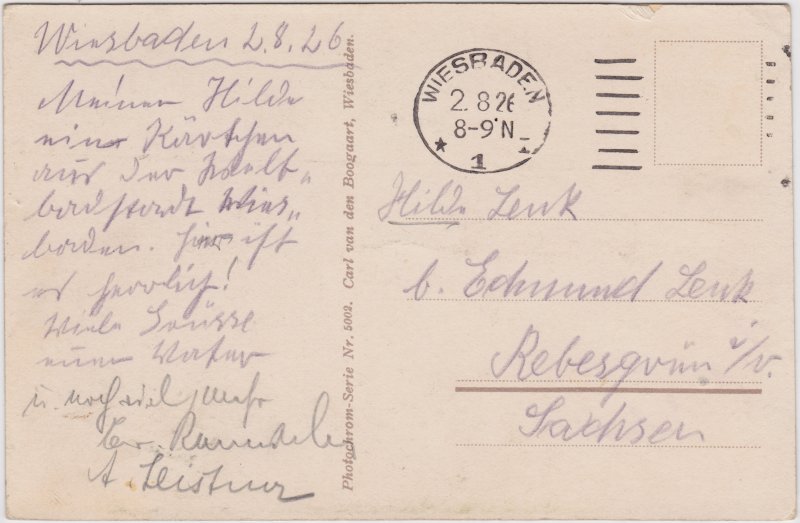 Wiesbaden 2.8.26
Meiner Hilde
ein Kärtchen
aus der Welt-
badstadt Wies-
baden. Hier ist
es herrlich!
Viele Grüsse
euer Vater
u. noch viel mehr
A. Leistner
Photochrom-Serie Nr. 5002. Carl van den Boogaart, Wiesbaden.
WIESBADEN
2.8.26
8-9 N
* 1
Hilde Lenk
b. Edmund Lenk
Rebesgrün i/V.
Sachsen